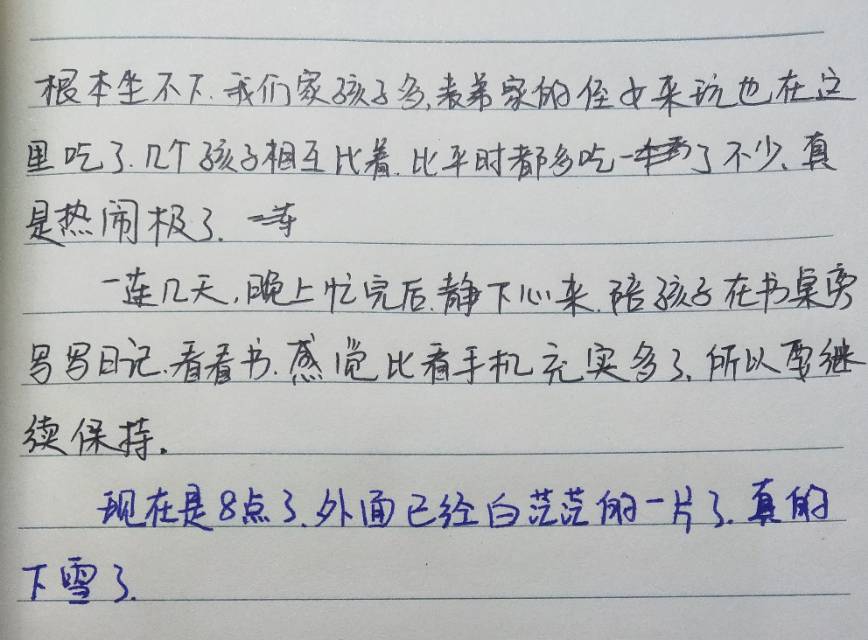 根本坐不下.我们家孩子多,表弟家的侄女来玩也在这
里吃了.几个孩子相互比着.比平时都多吃了不少、真
是热闹极了.
一连几天,晚上忙完后.静下心来.陪孩子在书桌旁
写写日记.看看书.感觉比看手机充实多了、所以要继
续保持。
现在是8点了.外面已经白茫茫的一片了.真的
下雪了.